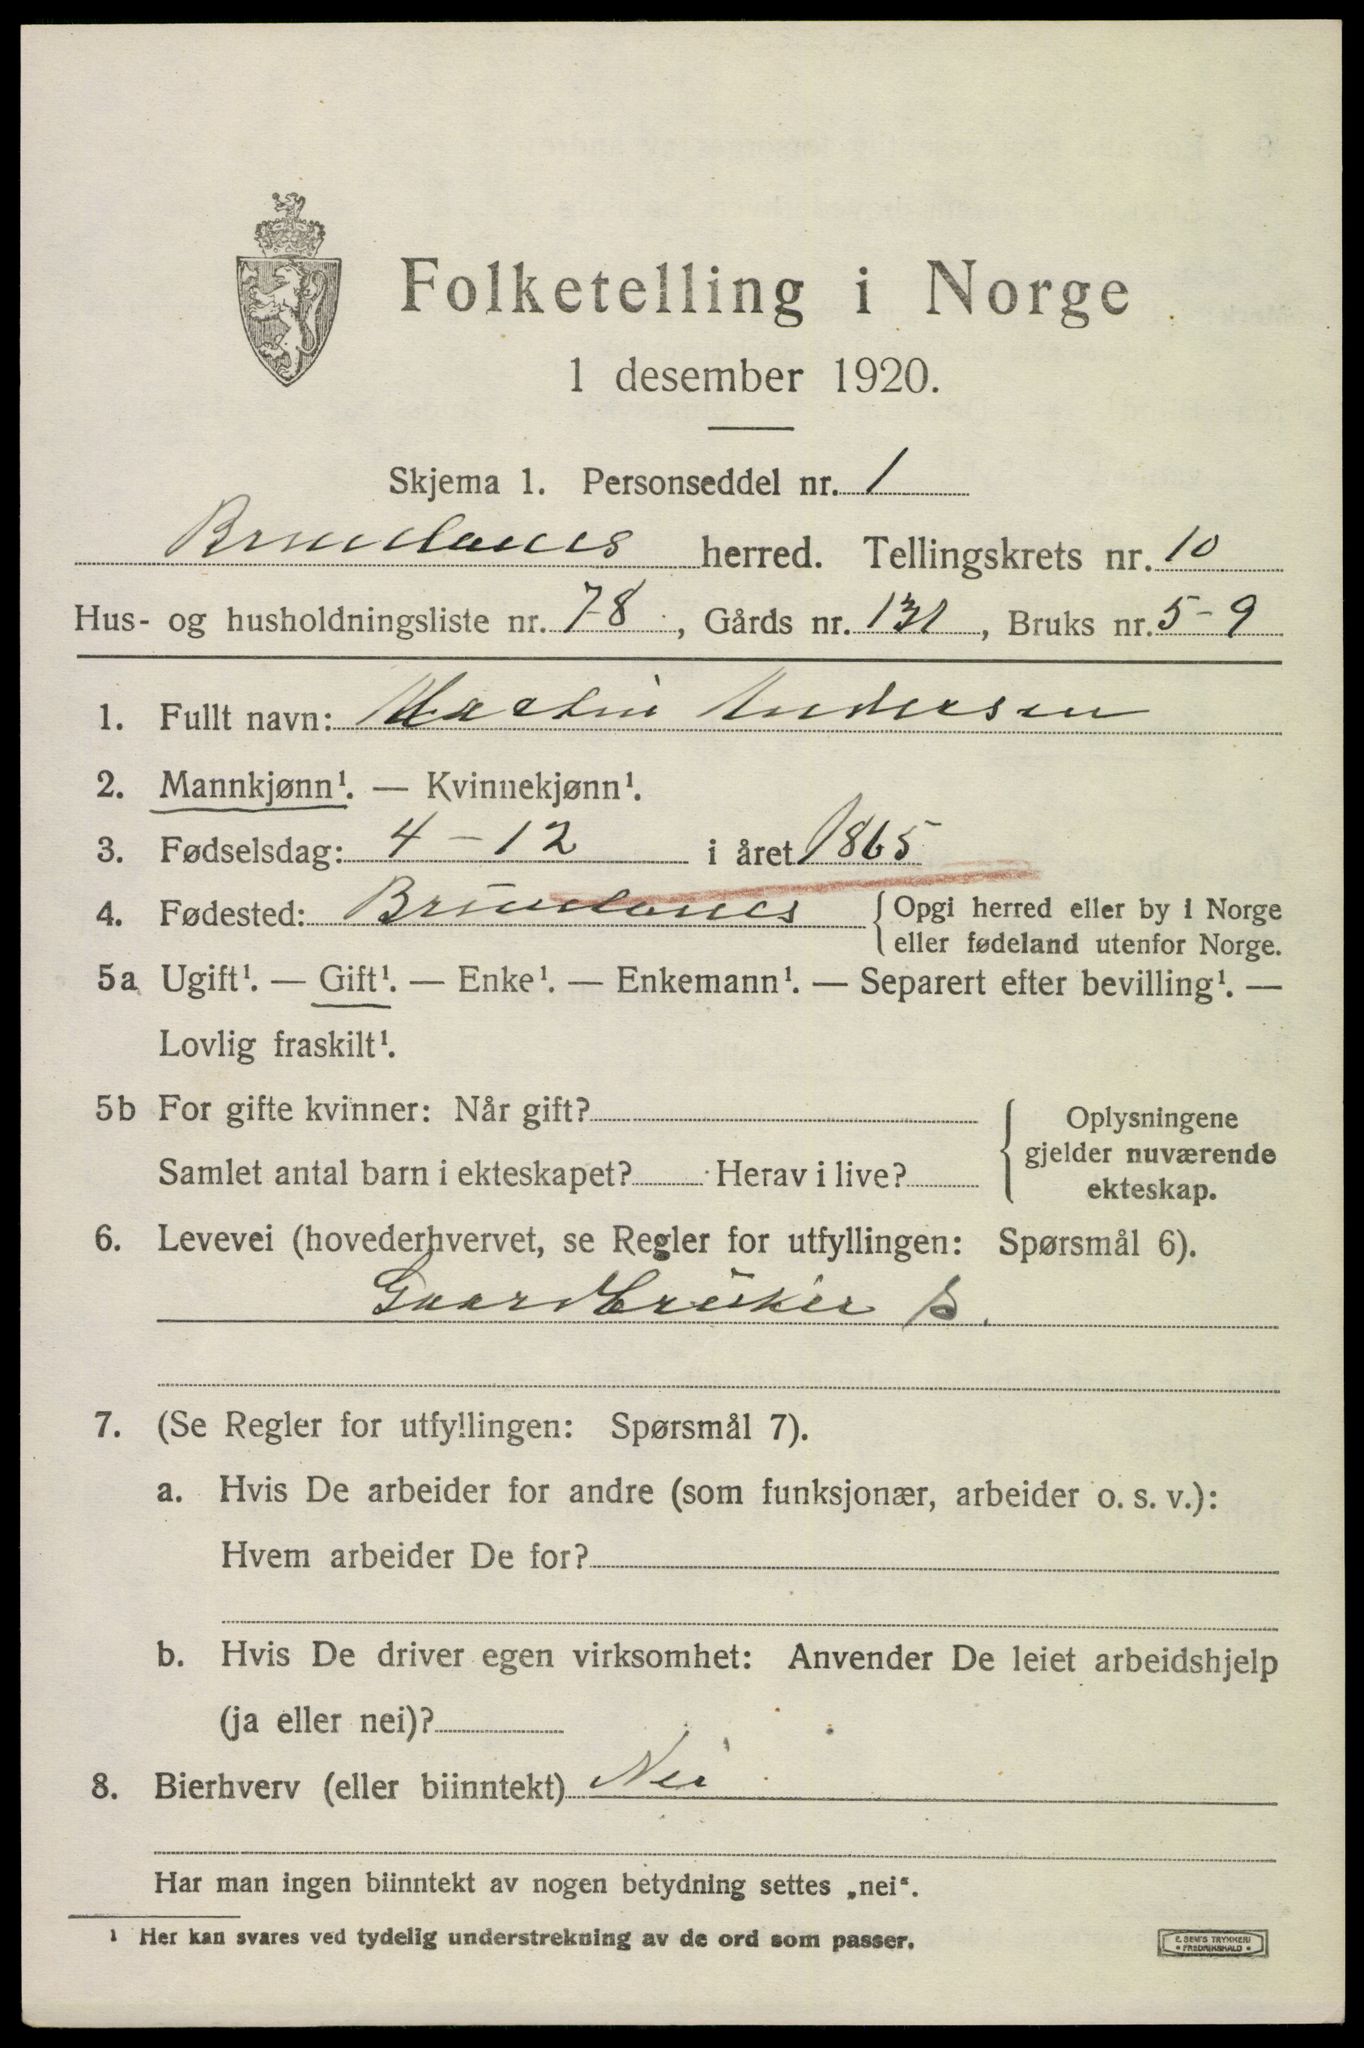 Folketelling i Norge
1 desember 1920.
Skjema 1. Personseddel nr. 1
Brunlanes herred. Tellingskrets nr. 10
Hus- og husholdningsliste nr. 78, Gårds nr. 131, Bruks nr. 5-9
1. Fullt navn: Martin Andersen
2. Mannkjønn¹. — Kvinnekjønn¹.
3. Fødselsdag: 4-12 i året 1865
4. Fødested: Brunlanes { Opgi herred eller by i Norge
eller fødeland utenfor Norge.
5a Ugift¹. — Gift¹. — Enke¹. — Enkemann¹. — Separert efter bevilling¹. —
Lovlig fraskilt¹.
5b For gifte kvinner: Når gift?
Samlet antal barn i ekteskapet? Herav i live?
Oplysningene
gjelder nuværende
ekteskap.
6. Levevei (hovederhvervet, se Regler for utfyllingen: Spørsmål 6).
Gaardbruker S.
7. (Se Regler for utfyllingen: Spørsmål 7).
a. Hvis De arbeider for andre (som funksjonær, arbeider o. s. v.):
Hvem arbeider De for?
b. Hvis De driver egen virksomhet: Anvender De leiet arbeidshjelp
(ja eller nei)?
8. Bierhverv (eller biinntekt) Nei
Har man ingen biinntekt av nogen betydning settes „nei“.
¹ Her kan svares ved tydelig understrekning av de ord som passer.
E. SEM'S TRYKKERI
• FREDRIKSHALD •